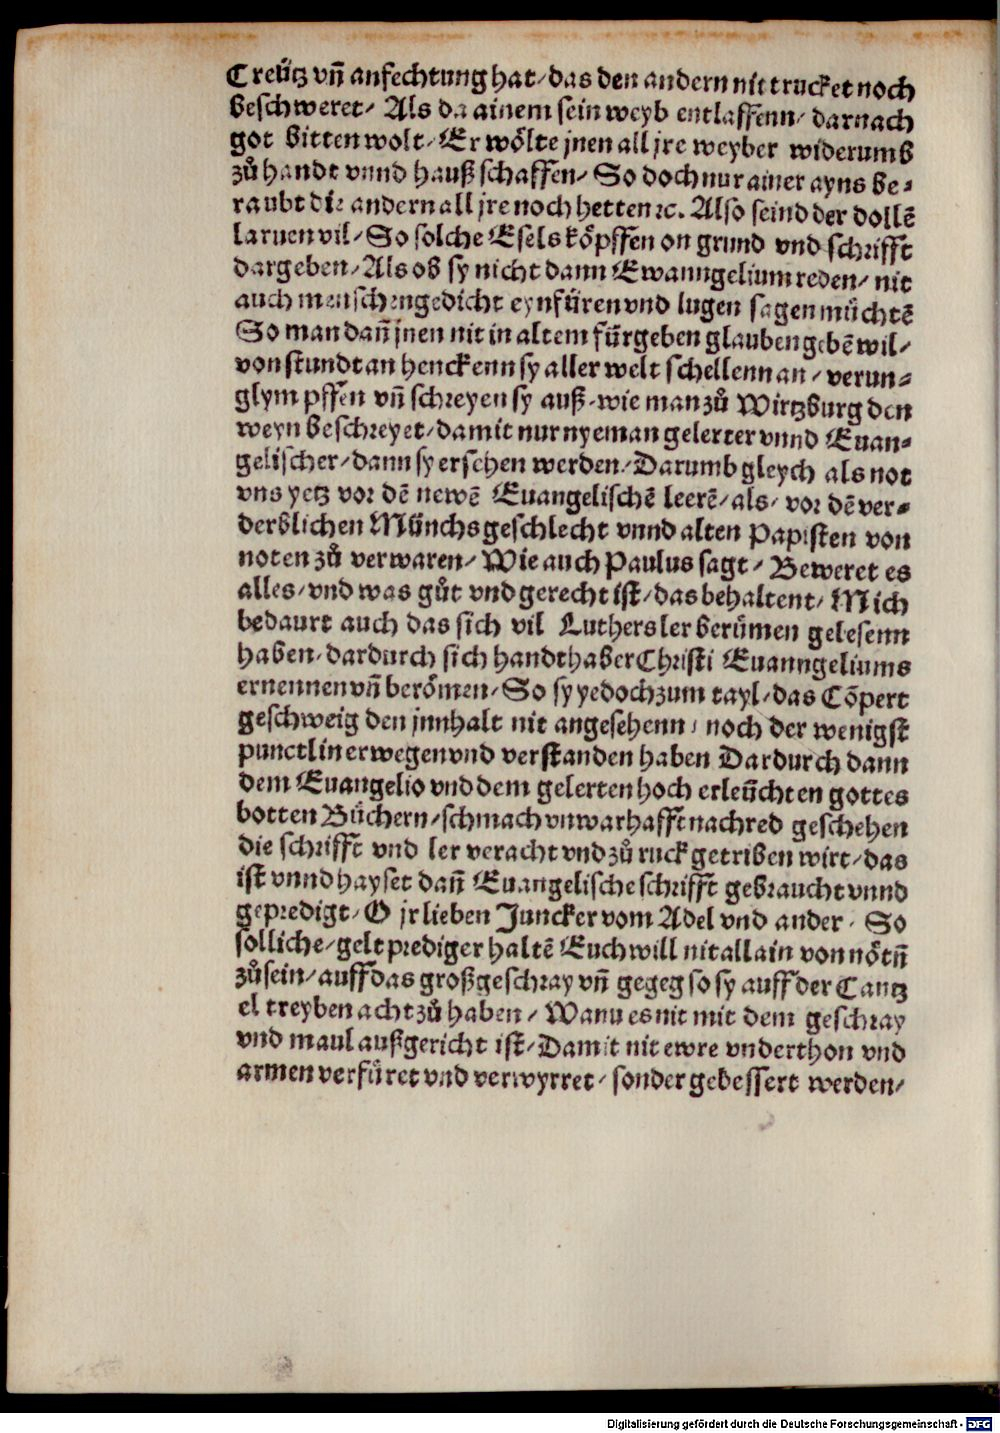 Creütz vñ anfechtung hat/ das den andern nit trucket noch
beschweret/ Als da ainem sein weyb entlaffenn/ darnach
got bitten wolt/ Er wölte jnen all jre weyber widerumb
zů handt vnnd hauß schaffen/ So doch nur ainer ayns be⸗
raubt die andern all jre noch hetten ꝛc. Also seind der dollē
laruen vil/ So solche Esels köpffen on grund vnd schrifft
dargeben/ Als ob sy nicht dann Ewanngelium reden/ nit
auch menschengedicht eynfüren vnd lugen sagen müchtē
So man dañ jnen nit in altem fürgeben glauben gebē wil/
von stundt an henckenn sy aller welt schellenn an/ verun⸗
glympffen vñ schreyen sy auß/ wie man zů Wirtzburg den
weyn beschreyet/ damit nur nyeman gelerter vnnd Euan⸗
gelischer/ dann sy ersehen werden/ Darumb gleych als not
vns yetz vor dē newē Euangelischē leerē/ als/ vor dē ver⸗
derblichen Münchs geschlecht vnnd alten Papisten von
noten zů verwaren/ Wie auch Paulus sagt/ Beweret es
alles/ vnd was gůt vnd gerecht ist/ das behaltent/ Mich
bedaurt auch das sich vil Luthers ler berümen gelesenn
haben/ dardurch sich handthaber Christi Euanngeliums
ernennen vñ berömen/ So sy yedoch zum tayl/ das Cōpert
geschweig den jnnhalt nit angesehenn/ noch der wenigst
punctlin erwegen vnd verstanden haben Dardurch dann
dem Euangelio vnd dem gelerten hoch erleüchten gottes
botten Büchern/ schmach vnwarhafft nachred geschehen
die schrifft vnd ler veracht vnd zů ruck getriben wirt/ das
ist vnnd hayset dañ Euangelische schrifft gebraucht vnnd
gepredigt/ O jr lieben Juncker vom Adel vnd ander/ So
solliche/ gelt prediger haltē Euch will nit allain von nötñ
zů sein/ auff das groß geschray vñ gegeg so sy auff der Cantz
el treyben acht zů haben/ Wann es nit mit dem geschray
vnd maul außgericht ist/ Damit nit ewre vnderthon vnd
armen verfüret vnd verwyrret/ sonder gebessert werden/
Digitalisierung gefördert durch die Deutsche Forschungsgemeinschaft - DFG